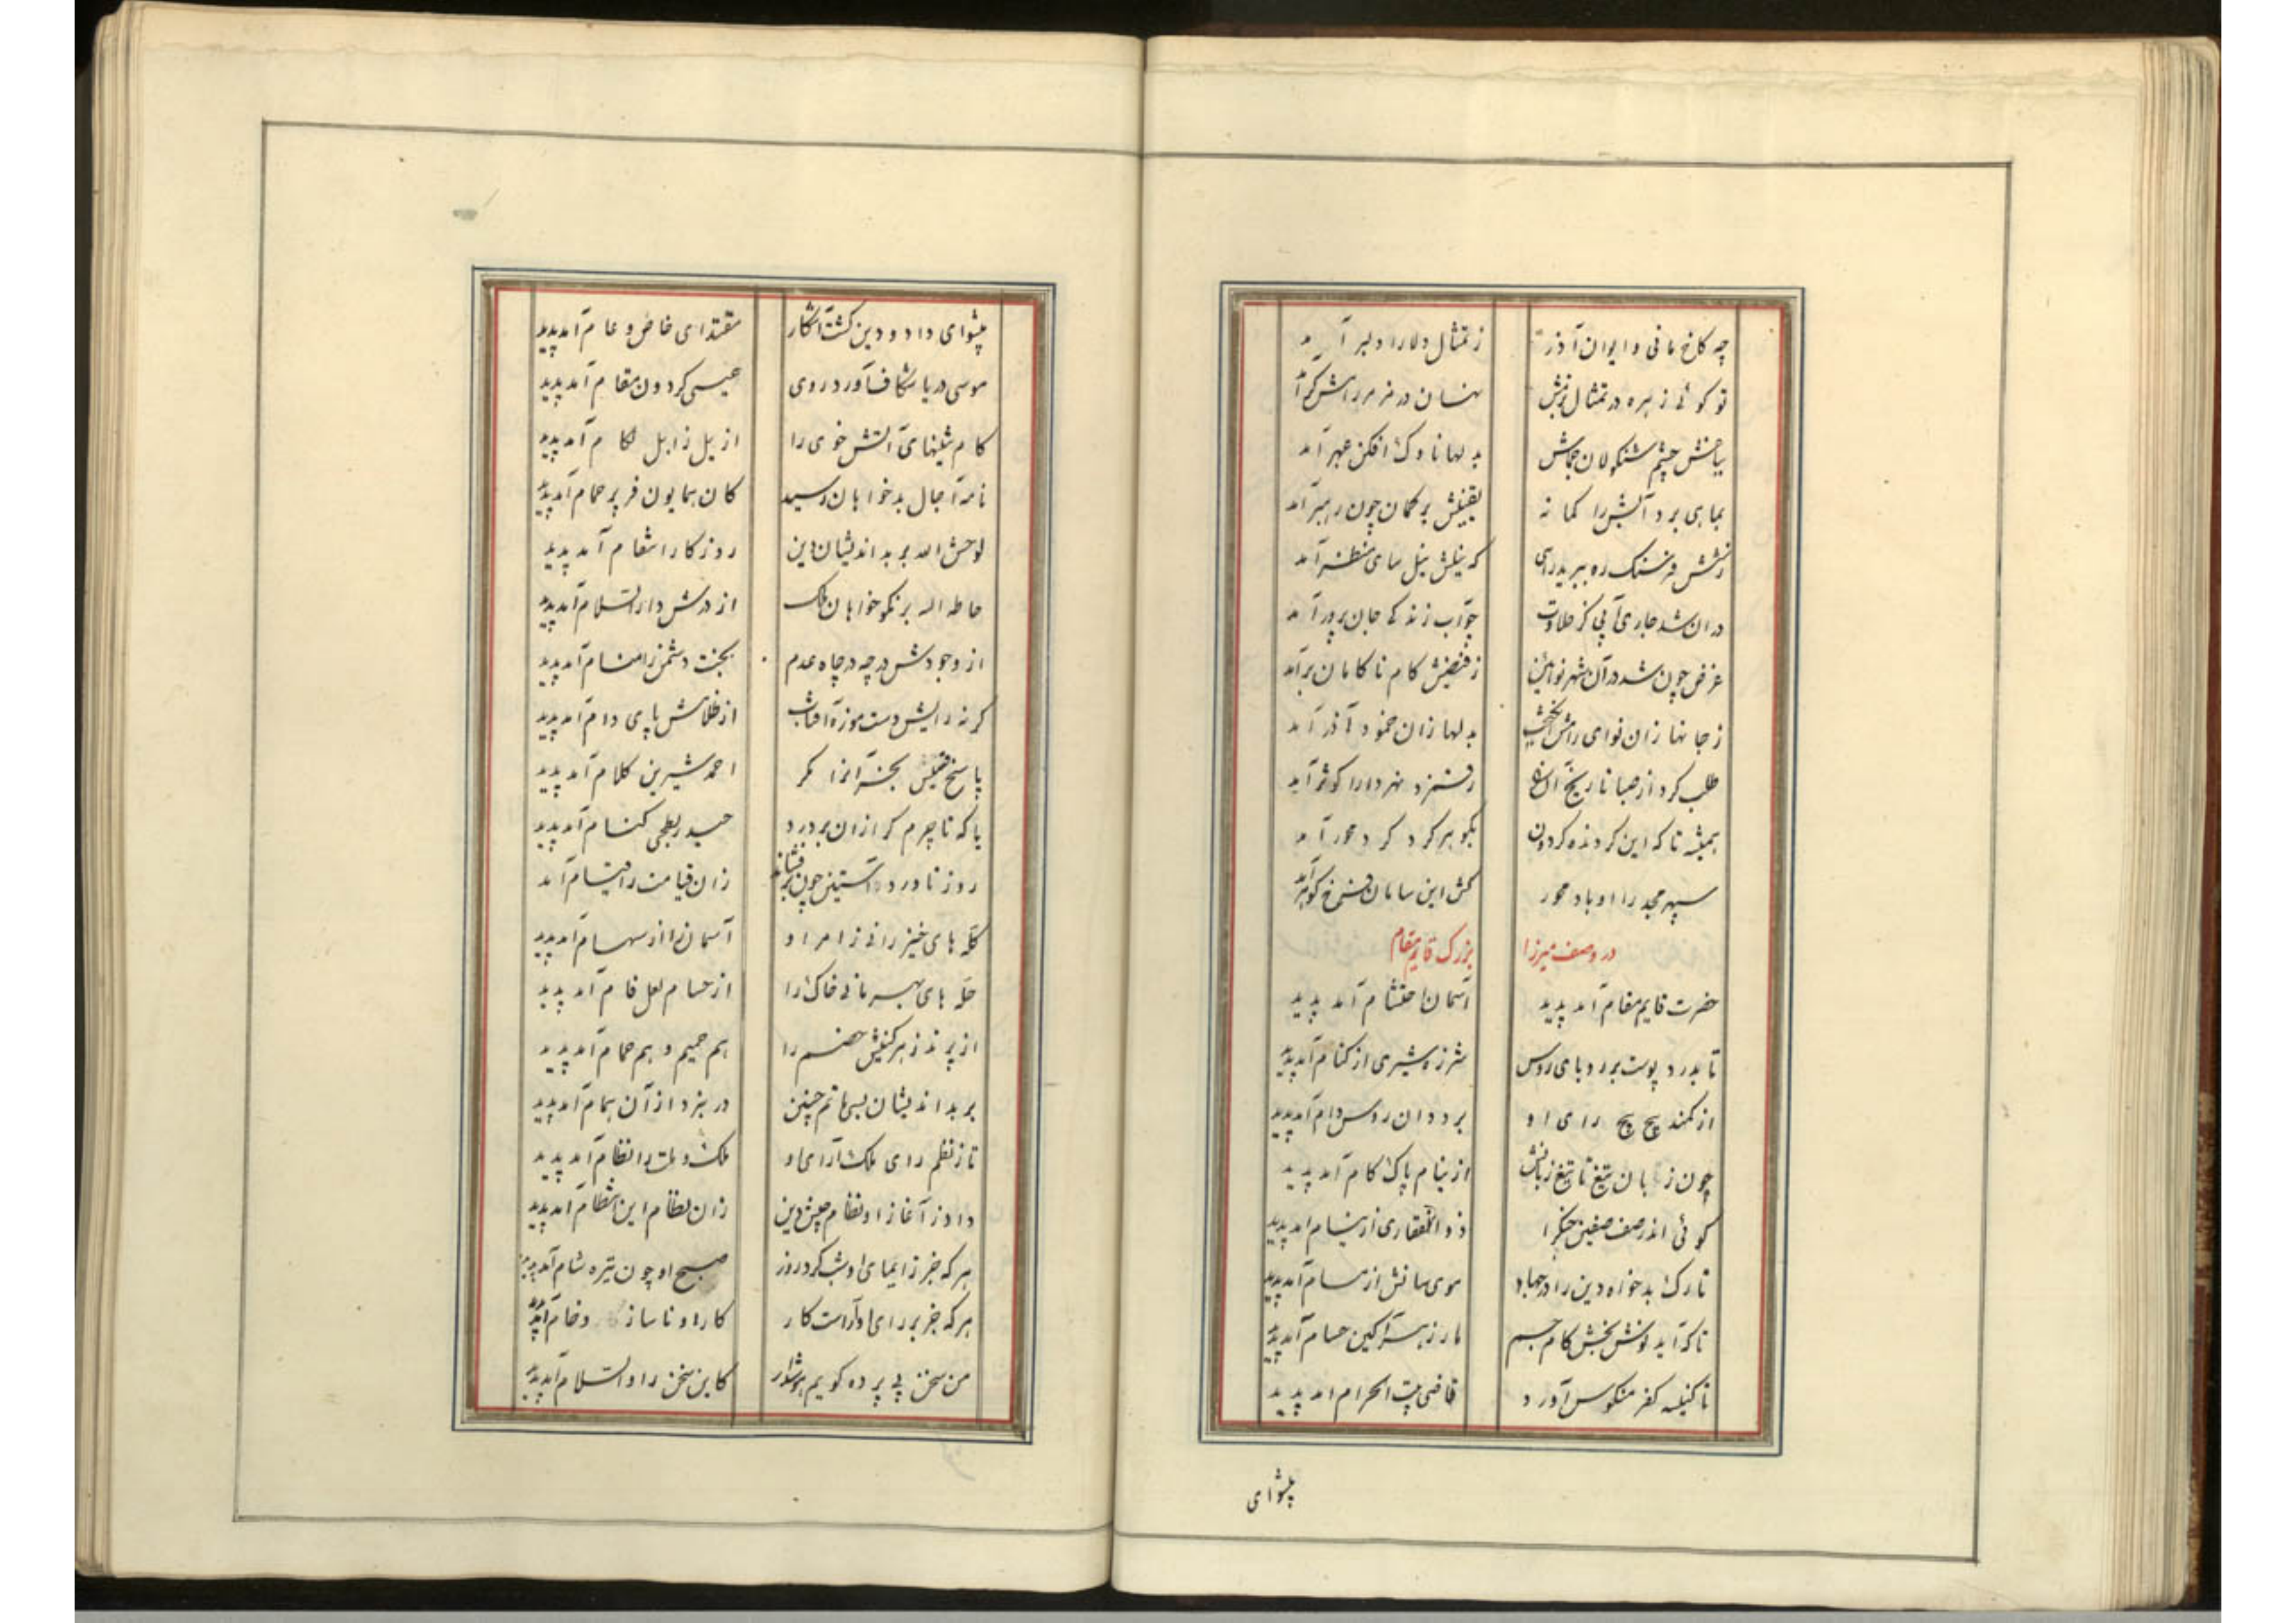 چه کاخ مانی و ایوان آذر
ز تمثال دلارا دلبر آمد
تو گوئی زهره در تمثال
بیاضش چشم شنگولان جماش
بدلها ناوک افکن عبهر آمد
بماهی برد آبش را کمانه
یقینش بر گمان چون رهبر آمد
فرسنگ ره
که نیلش نیل سای منظر آمد
در ان شد جاری آبی کز حلاوت
چو آب زندگی جان پرور آمد
غرض چون شد در آن شهر نوآئین
ز فیضش کام ناکامان بر آمد
ز جانها زان نوای
بدلها زان خمود آذر آمد
طلب کرد از صبا تاریخ آن
همیشه تا که این گردنده گردون
بگوهر گرد گرد محور آمد
سپهر مجد را او باد محور
کش این سامان فرخ گوهر آمد
در وصف میرزا بزرگ قایم مقام
حضرت قایم مقام آمد پدید
آسمان احتشام آمد پدید
تا بدرد پوست بر روبای روس
شرزه شیری از کنام آمد پدید
از کمند پیچ پیچ رای او
بر ددان روس دام آمد پدید
چون زبان تیغ تا تیغ زبانش
از نیام پاک کام آمد پدید
گوئی اندر صف صفین
ذوالفقاری از نیام امد پدید
تارک بدخواه دین را در جهاد
موی سانش از سام آمد پدید
تا که آید نوش بخش کام جسم
مار زهر آگین حسام آمد پدید
تا کنیسه کفر منکوس آورد
قاضی بیت الحرام امد پدید
پیشوای
پیشوای داد و دین گشت آشکار
مقتدای خاص و عام آمد پدید
موسی دریا شکاف آورد روی
عیسی گردون مقام آمد پدید
از پیل زابل آمد پدید
نامه آجال بدخواهان رسید
کان همایون فر پر حمام آمد پدید
لوحش الله بر بد اندیشان دین
روزگار انتقام آمد پدید
حاطه الله بر نکو خواهان ملک
از درش دارالسلام آمد پدید
از وجودش در چه در چاه عدم
بخت دشمن را منام آمد پدید
گر نه رایش دست موزه آفتاب
از ظلامش پای دام آمد پدید
احمد شیرین کلام آمد پدید
یا که تا چرم گرازان بر درد
حیدر بطحی کنام آمد پدید
روز ناورد آستین چون بر فشاند
زان قیامت را قیام آمد
کله های خیزرانی زامر او
آسمان را از سهام آمد پدید
حله های بهرمانی خاک را
از حسام لعل فام آمد پدید
از پرند زهر گینش خصم را
هم حمیم و هم حمام آمد پدید
بر بد اندیشان بسی ماتم چنین
در نبرد از آن همام آمد پدید
تا ز نظم رای ملک آرای او
ملک و ملت را نظام آمد پدید
داد ز آغاز او نظام جیش دین
زان نظام این انتظام آمد پدید
هر که جز ز ایمای او شب کرد روز
صبح او چون تیره شام آمد پدید
هر که جز بر رای او آراست کار
کار او ناساز و خام آمد پدید
من سخن بی پرده گویم هوشدار
کاین سخن را والسلام آمد پدید